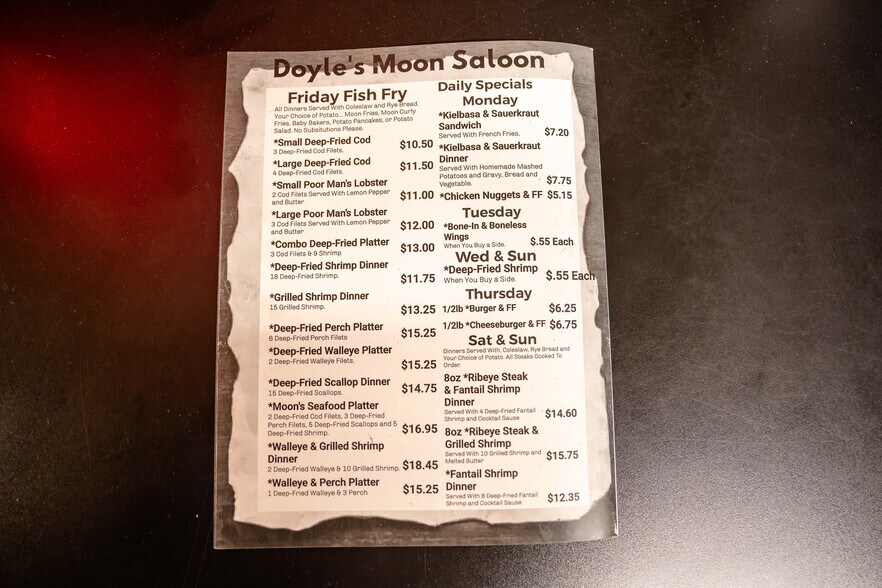 Doyle's Moon Saloon
Friday Fish Fry
All Dinners Served With Coleslaw and Rye Bread.
Your Choice of Potato... Moon Fries, Moon Curly
Fries, Baby Bakers, Potato Pancakes, or Potato
Salad. No Subsitutions Please.
*Small Deep-Fried Cod
3 Deep-Fried Cod Filets.
$10.50
*Large Deep-Fried Cod
4 Deep-Fried Cod Filets.
$11.50
*Small Poor Man's Lobster
2 Cod Filets Served With Lemon Pepper
and Butter
$11.00
*Large Poor Man's Lobster
3 Cod Filets Served With Lemon Pepper
and Butter
$12.00
*Combo Deep-Fried Platter
3 Cod Filets & 9 Shrimp
$13.00
*Deep-Fried Shrimp Dinner
18 Deep-Fried Shrimp.
$11.75
*Grilled Shrimp Dinner
15 Grilled Shrimp.
$13.25
*Deep-Fried Perch Platter
6 Deep-Fried Perch Filets
$15.25
*Deep-Fried Walleye Platter
2 Deep-Fried Walleye Filets.
$15.25
*Deep-Fried Scallop Dinner
15 Deep-Fried Scallops.
$14.75
*Moon's Seafood Platter
2 Deep-Fried Cod Filets, 3 Deep-Fried
Perch Filets, 5 Deep-Fried Scallops and 5
Deep-Fried Shrimp.
$16.95
*Walleye & Grilled Shrimp
Dinner
2 Deep-Fried Walleye & 10 Grilled Shrimp.
$18.45
*Walleye & Perch Platter
1 Deep-Fried Walleye & 3 Perch
$15.25
Daily Specials
Monday
*Kielbasa & Sauerkraut
Sandwich
Served With French Fries.
$7.20
*Kielbasa & Sauerkraut
Dinner
Served With Homemade Mashed
Potatoes and Gravy, Bread and
Vegetable.
$7.75
*Chicken Nuggets & FF $5.15
Tuesday
*Bone-In & Boneless
Wings
When You Buy a Side.
$.55 Each
Wed & Sun
*Deep-Fried Shrimp
When You Buy a Side.
$.55 Each
Thursday
1/2lb *Burger & FF $6.25
1/2lb *Cheeseburger & FF $6.75
Sat & Sun
Dinners Served With, Coleslaw, Rye Bread and
Your Choice of Potato. All Steaks Cooked To
Order.
8oz *Ribeye Steak
& Fantail Shrimp
Dinner
Served With 4 Deep-Fried Fantail
Shrimp and Cocktail Sause
$14.60
8oz *Ribeye Steak &
Grilled Shrimp
Served With 10 Grilled Shrimp and
Melted Butter
$15.75
*Fantail Shrimp
Dinner
Served With 8 Deep-Fried Fantail
Shrimp and Cocktail Sause
$12.35